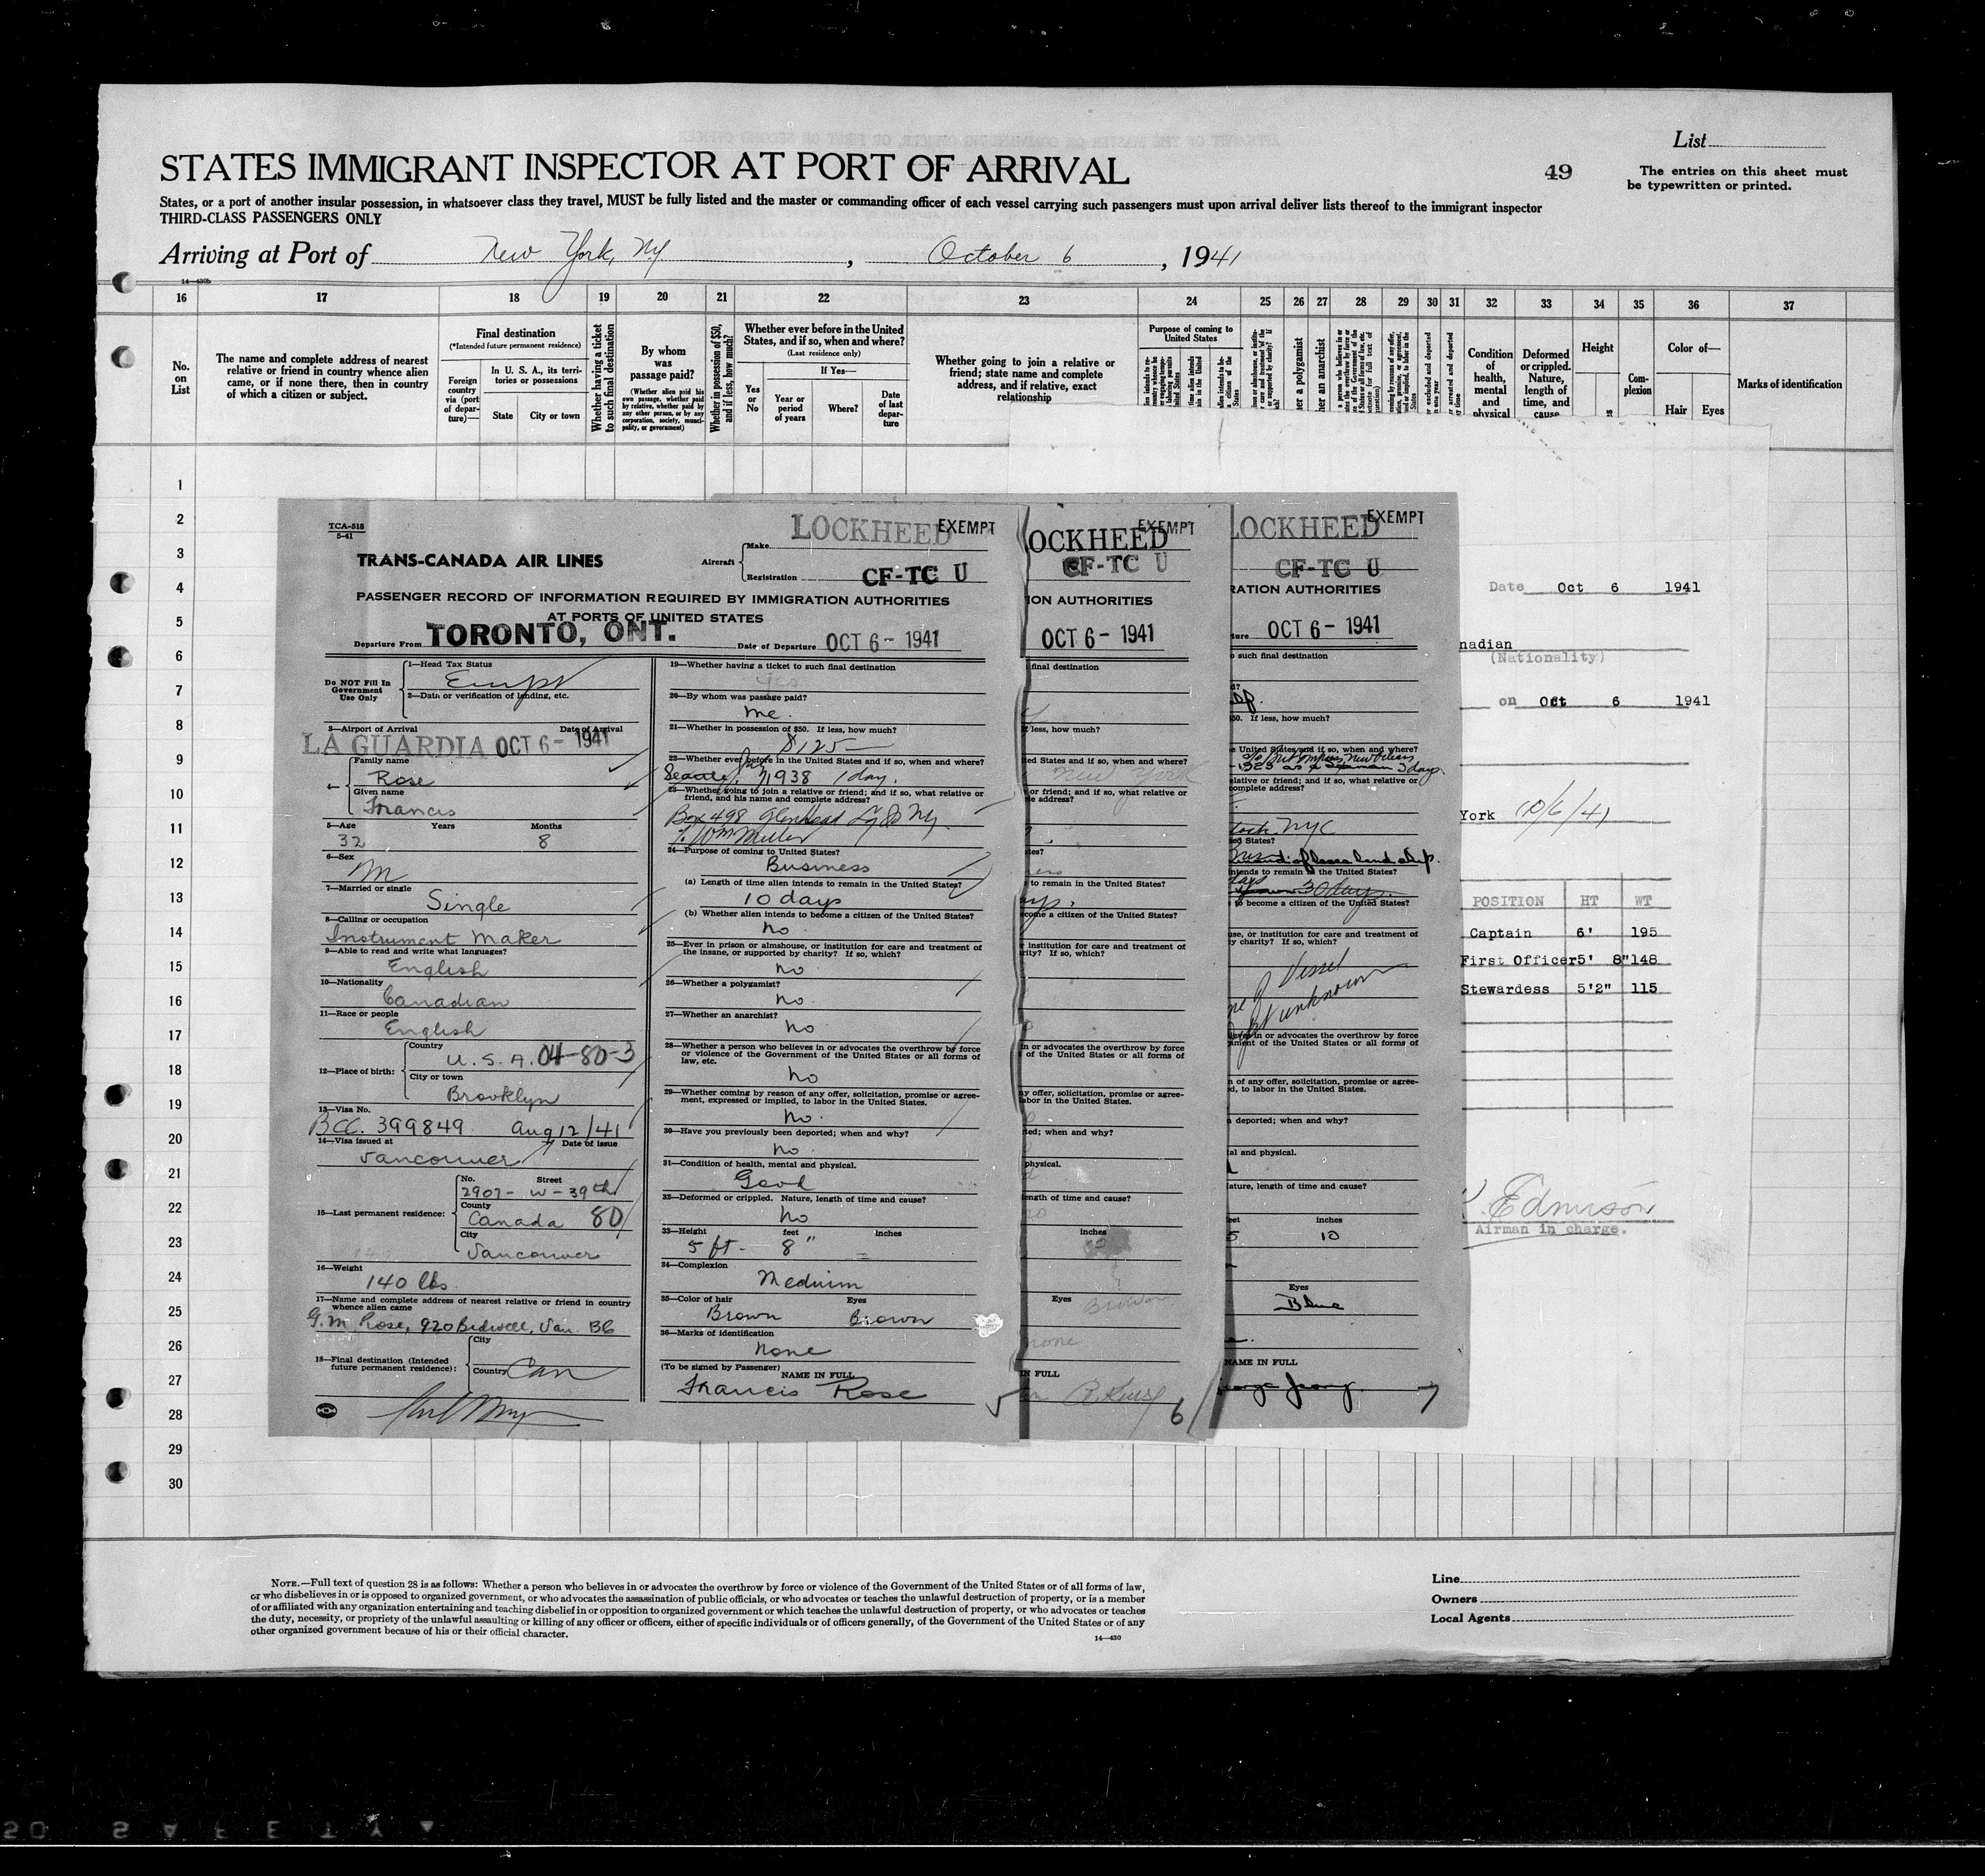 List
STATES IMMIGRANT INSPECTOR AT PORT OF ARRIVAL
49
The entries on this sheet must
be typewritten or printed.
States, or a port of another insular possession, in whatsoever class they travel, MUST be fully listed and the master or commanding officer of each vessel carrying such passengers must upon arrival deliver lists thereof to the immigrant inspector
THIRD-CLASS PASSENGERS ONLY
Arriving at Port of New York, NY, October 6, 1941
16 17 18 19 20 21 22 23 24 25 26 27 28 29 30 31 32 33 34 35 36 37
No.
on
List
The name and complete address of nearest
relative or friend in country whence alien
came, or if none there, then in country
of which a citizen or subject.
Final destination
(*Intended future permanent residence)
Foreign
country
via (port
of depar-
ture)—
In U. S. A., its terri-
tories or possessions
State
City or town
Whether having a ticket
to such final destination
By whom
was
passage paid?
(Whether alien paid his
own passage, whether paid
by relative, whether paid by
any other person, or by any
corporation, society, munici-
pality, or government)
Whether in possession of $50,
and if less, how much?
Whether ever before in the United
States, and if so, when and where?
(Last residence only)
Yes
or
No
If Yes—
Year or
period
of years
Where?
Date
of last
depar-
ture
Whether going to join a relative or
friend; state name and complete
address, and if relative, exact
relationship
Purpose of coming to
United States
Condition
of
health,
mental
and
physical
Deformed
or crippled.
Nature,
length of
time, and
cause
Height
Com-
plexion
Color of—
Hair Eyes
Marks of identification
1
2
3
4
5
6
7
8
9
10
11
12
13
14
15
16
17
18
19
20
21
22
23
24
25
26
27
28
29
30
TCA-518
5-41
TRANS-CANADA AIR LINES
Aircraft
Make LOCKHEED EXEMPT
Registration CF-TC U
PASSENGER RECORD OF INFORMATION REQUIRED BY IMMIGRATION AUTHORITIES
AT PORTS OF UNITED STATES
Departure From TORONTO, ONT.
Date of Departure OCT 6 - 1941
Do NOT Fill In
Government
Use Only
1—Head Tax Status
2—Data or verification of landing, etc.
3—Airport of Arrival Date of Arrival
LA GUARDIA OCT 6 - 1941
4—
Family name
Rose
Given name
Francis
5—Age Years Months
32 8
6—Sex
M
7—Married or single
Single
8—Calling or occupation
Instrument Maker
9—Able to read and write what languages?
English
10—Nationality
Canadian
11—Race or people
English
12—Place of birth:
Country
U. S. A. 04-80-3
City or town
Brooklyn
13—Visa No.
BCC. 399849 Aug 12/41
14—Visa issued at Date of issue
Vancouver
15—Last permanent residence:
No. Street
2907 - W - 39th
County
Canada 80
City
Vancouver
16—Weight
140 lbs
17—Name and complete address of nearest relative or friend in country
whence alien came
G. M Rose, 920 Bidwell, Van. BC
18—Final destination (Intended
future permanent residence):
City
Country Can
19—Whether having a ticket to such final destination
Yes
20—By whom was passage paid?
me.
21—Whether in possession of $50. If less, how much?
$125—
22—Whether ever before in the United States and if so, when and where?
Seattle, July 1938 1 day.
23—Whether going to join a relative or friend; and if so, what relative or
friend, and his name and complete address?
Box 498 Glenhead NY.
Wm Muller
24—Purpose of coming to United States?
Business
(a) Length of time alien intends to remain in the United States?
10 days
(b) Whether alien intends to become a citizen of the United States?
No
25—Ever in prison or almshouse, or institution for care and treatment of
the insane, or supported by charity? If so, which?
No
26—Whether a polygamist?
No
27—Whether an anarchist?
No
28—Whether a person who believes in or advocates the overthrow by force
or violence of the Government of the United States or all forms of
law, etc.
No
29—Whether coming by reason of any offer, solicitation, promise or agree-
ment, expressed or implied, to labor in the United States.
No.
30—Have you previously been deported; when and why?
No
31—Condition of health, mental and physical.
Good
32—Deformed or crippled. Nature, length of time and cause?
No
33—Height feet inches
5 ft - 8"
34—Complexion
Medium
35—Color of hair Eyes
Brown Brown
36—Marks of identification
None
(To be signed by Passenger)
NAME IN FULL
Francis Rose
5
OCKHEED EXEMPT
CF-TC U
ION AUTHORITIES
OCT 6 - 1941
final destination
f less, how much?
ted States and if so, when and where?
New York
or friend; and if so, what relative or
te address?
tes?
to remain in the United States?
ecome a citizen of the United States?
r institution for care and treatment of
rity? If so, which?
in or advocates the overthrow by force
of the Government of the United States or all forms of
ny offer, solicitation, promise or agree-
labor in the United States.
ted; when and why?
physical.
ength of time and cause?
inches
Eyes
Brown
none
IN FULL
6
LOCKHEED EXEMPT
CF-TC U
RATION AUTHORITIES
ture OCT 6 - 1941
o such final destination
50. If less, how much?
e United States and if so, when and where?
3 days.
elative or friend; and if so, what relative or
complete address?
NYC
ed States?
ntends to remain in the United States?
30 days.
s to become a citizen of the United States?
use, or institution for care and treatment of
y charity? If so, which?
Vessel
unknown
lieves in or advocates the overthrow by force
nment of the United States or all forms of
n of any offer, solicitation, promise or agree-
d, to labor in the United States.
n deported; when and why?
tal and physical.
ature, length of time and cause?
eet inches
5 10
Eyes
Blue
NAME IN FULL
7
Date Oct 6 1941
nadian
(Nationality)
on Oct 6 1941
York (10/6/41
POSITION HT WT
Captain 6' 195
First Officer 5' 8" 148
Stewardess 5'2" 115
Edmison
Airman in charge.
NOTE.—Full text of question 28 is as follows: Whether a person who believes in or advocates the overthrow by force or violence of the Government of the United States or of all forms of law,
or who disbelieves in or is opposed to organized government, or who advocates the assassination of public officials, or who advocates or teaches the unlawful destruction of property, or is a member
of or affiliated with any organization entertaining and teaching disbelief in or opposition to organized government or which teaches the unlawful destruction of property, or who advocates or teaches
the duty, necessity, or propriety of the unlawful assaulting or killing of any officer or officers, either of specific individuals or of officers generally, of the Government of the United States or of any
other organized government because of his or their official character.
14—430
Line
Owners
Local Agents
SAFETY